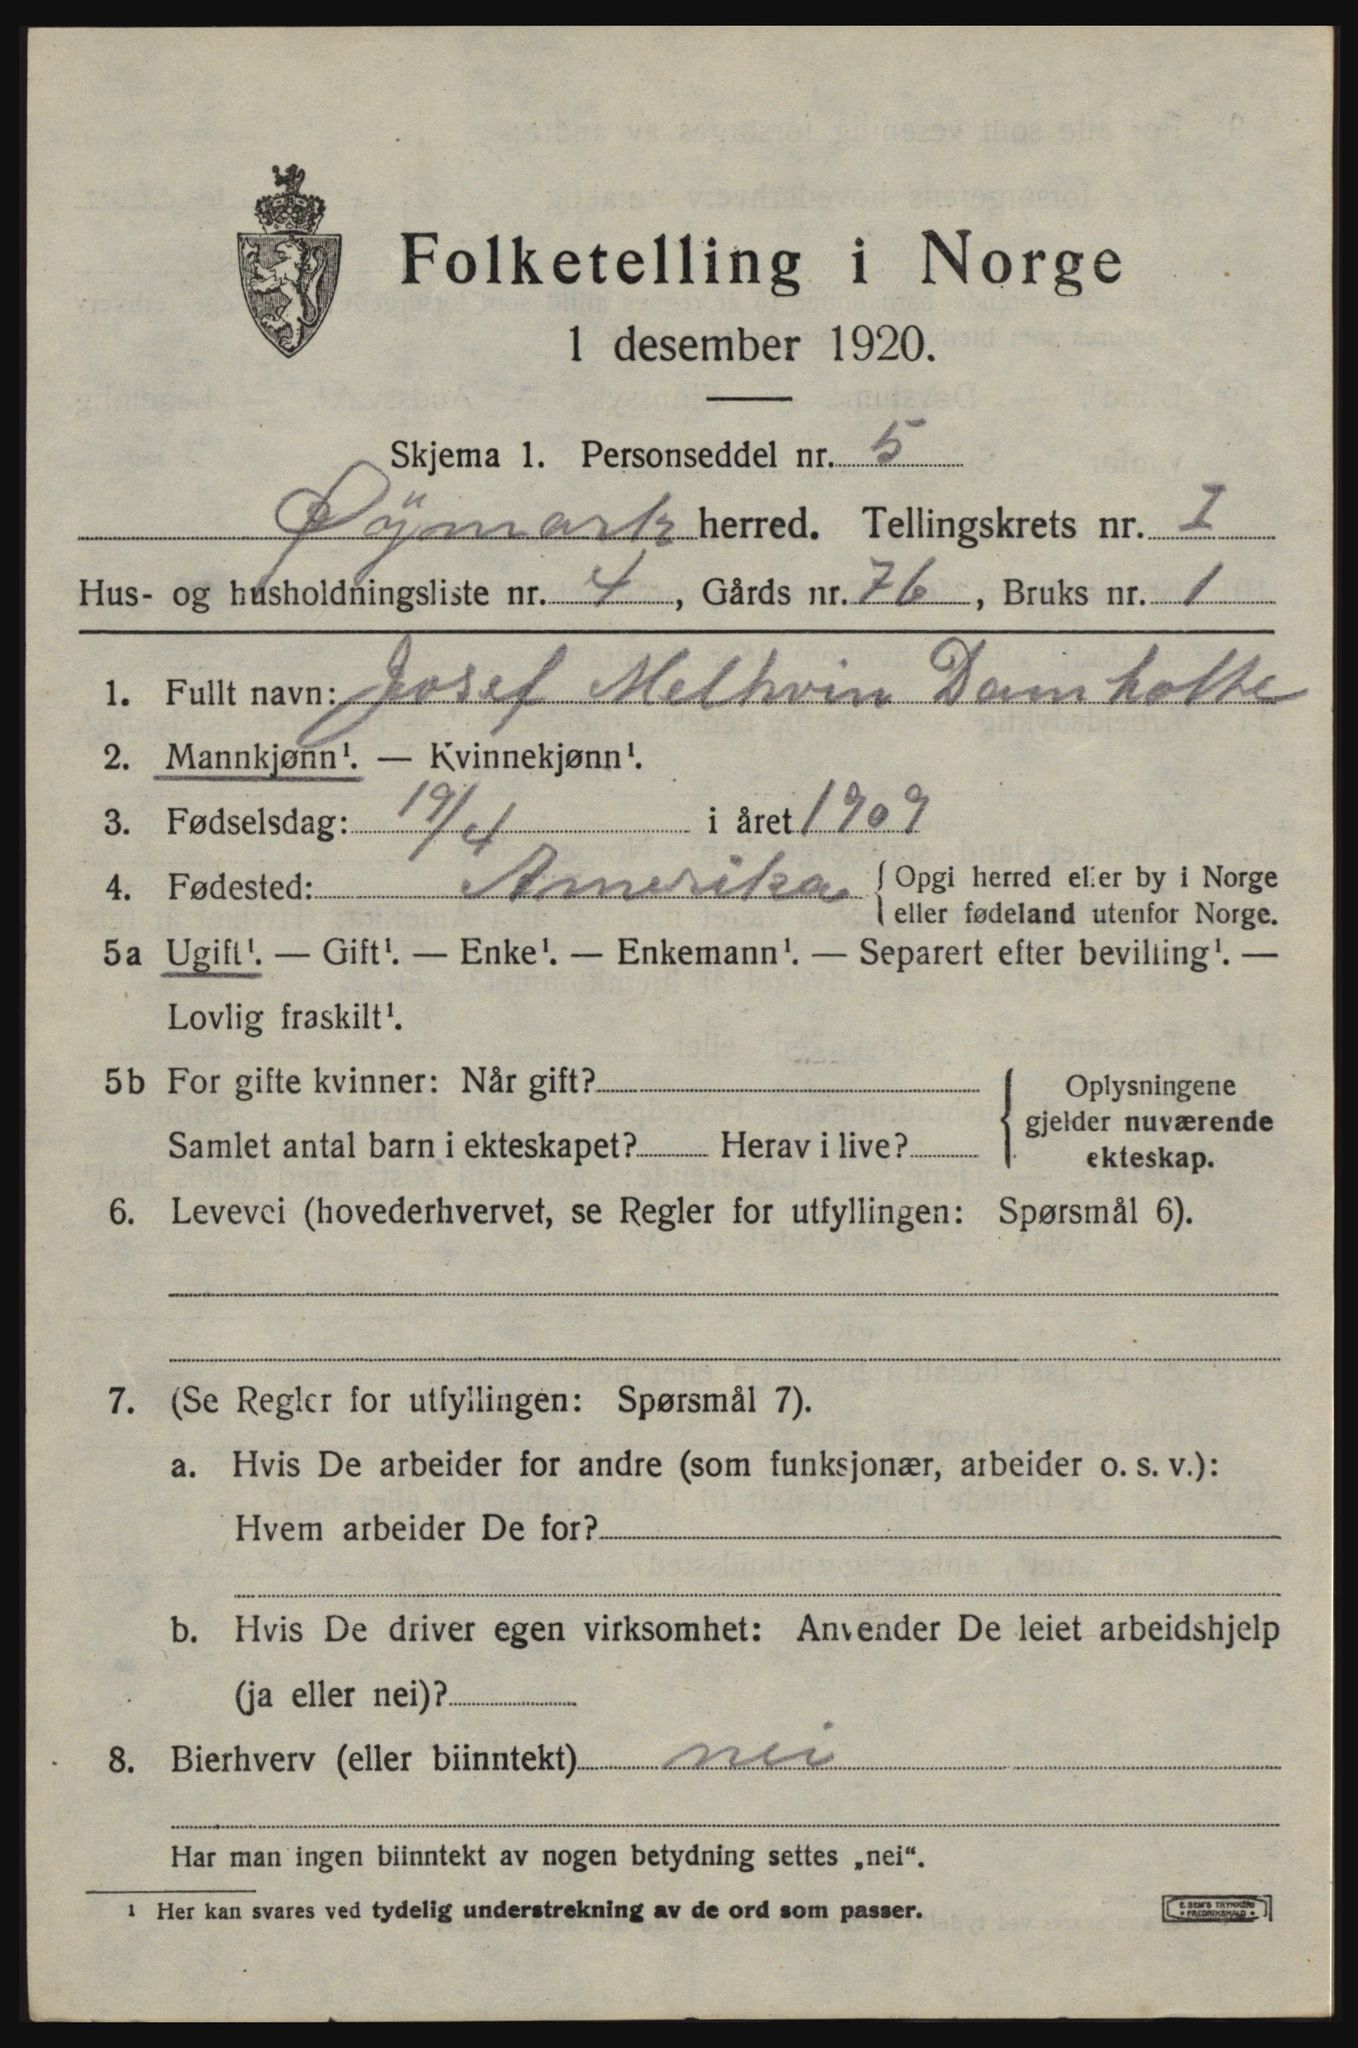 Folketelling i Norge
1 desember 1920.
Skjema 1. Personseddel nr. 5
Øymark herred. Tellingskrets nr. I
Hus- og husholdningsliste nr. 4, Gårds nr. 76, Bruks nr. 1
1. Fullt navn: Josef Melhvin Damholtte
2. Mannkjønn¹. — Kvinnekjønn¹.
3. Fødselsdag: 19/4 i året 1909
4. Fødested: Amerika { Opgi herred eller by i Norge
eller fødeland utenfor Norge.
5a Ugift¹. — Gift¹. — Enke¹. — Enkemann¹. — Separert efter bevilling¹. —
Lovlig fraskilt¹.
5b For gifte kvinner: Når gift?
Samlet antal barn i ekteskapet? Herav i live?
{ Oplysningene
gjelder nuværende
ekteskap.
6. Levevei (hovederhvervet, se Regler for utfyllingen: Spørsmål 6).
7. (Se Regler for utfyllingen: Spørsmål 7).
a. Hvis De arbeider for andre (som funksjonær, arbeider o. s. v.):
Hvem arbeider De for?
b. Hvis De driver egen virksomhet: Anvender De leiet arbeidshjelp
(ja eller nei)?
8. Bierhverv (eller biinntekt) nei
Har man ingen biinntekt av nogen betydning settes „nei“.
¹ Her kan svares ved tydelig understrekning av de ord som passer.
E. SEM'S TRYKKERI
• FREDRIKSHALD •